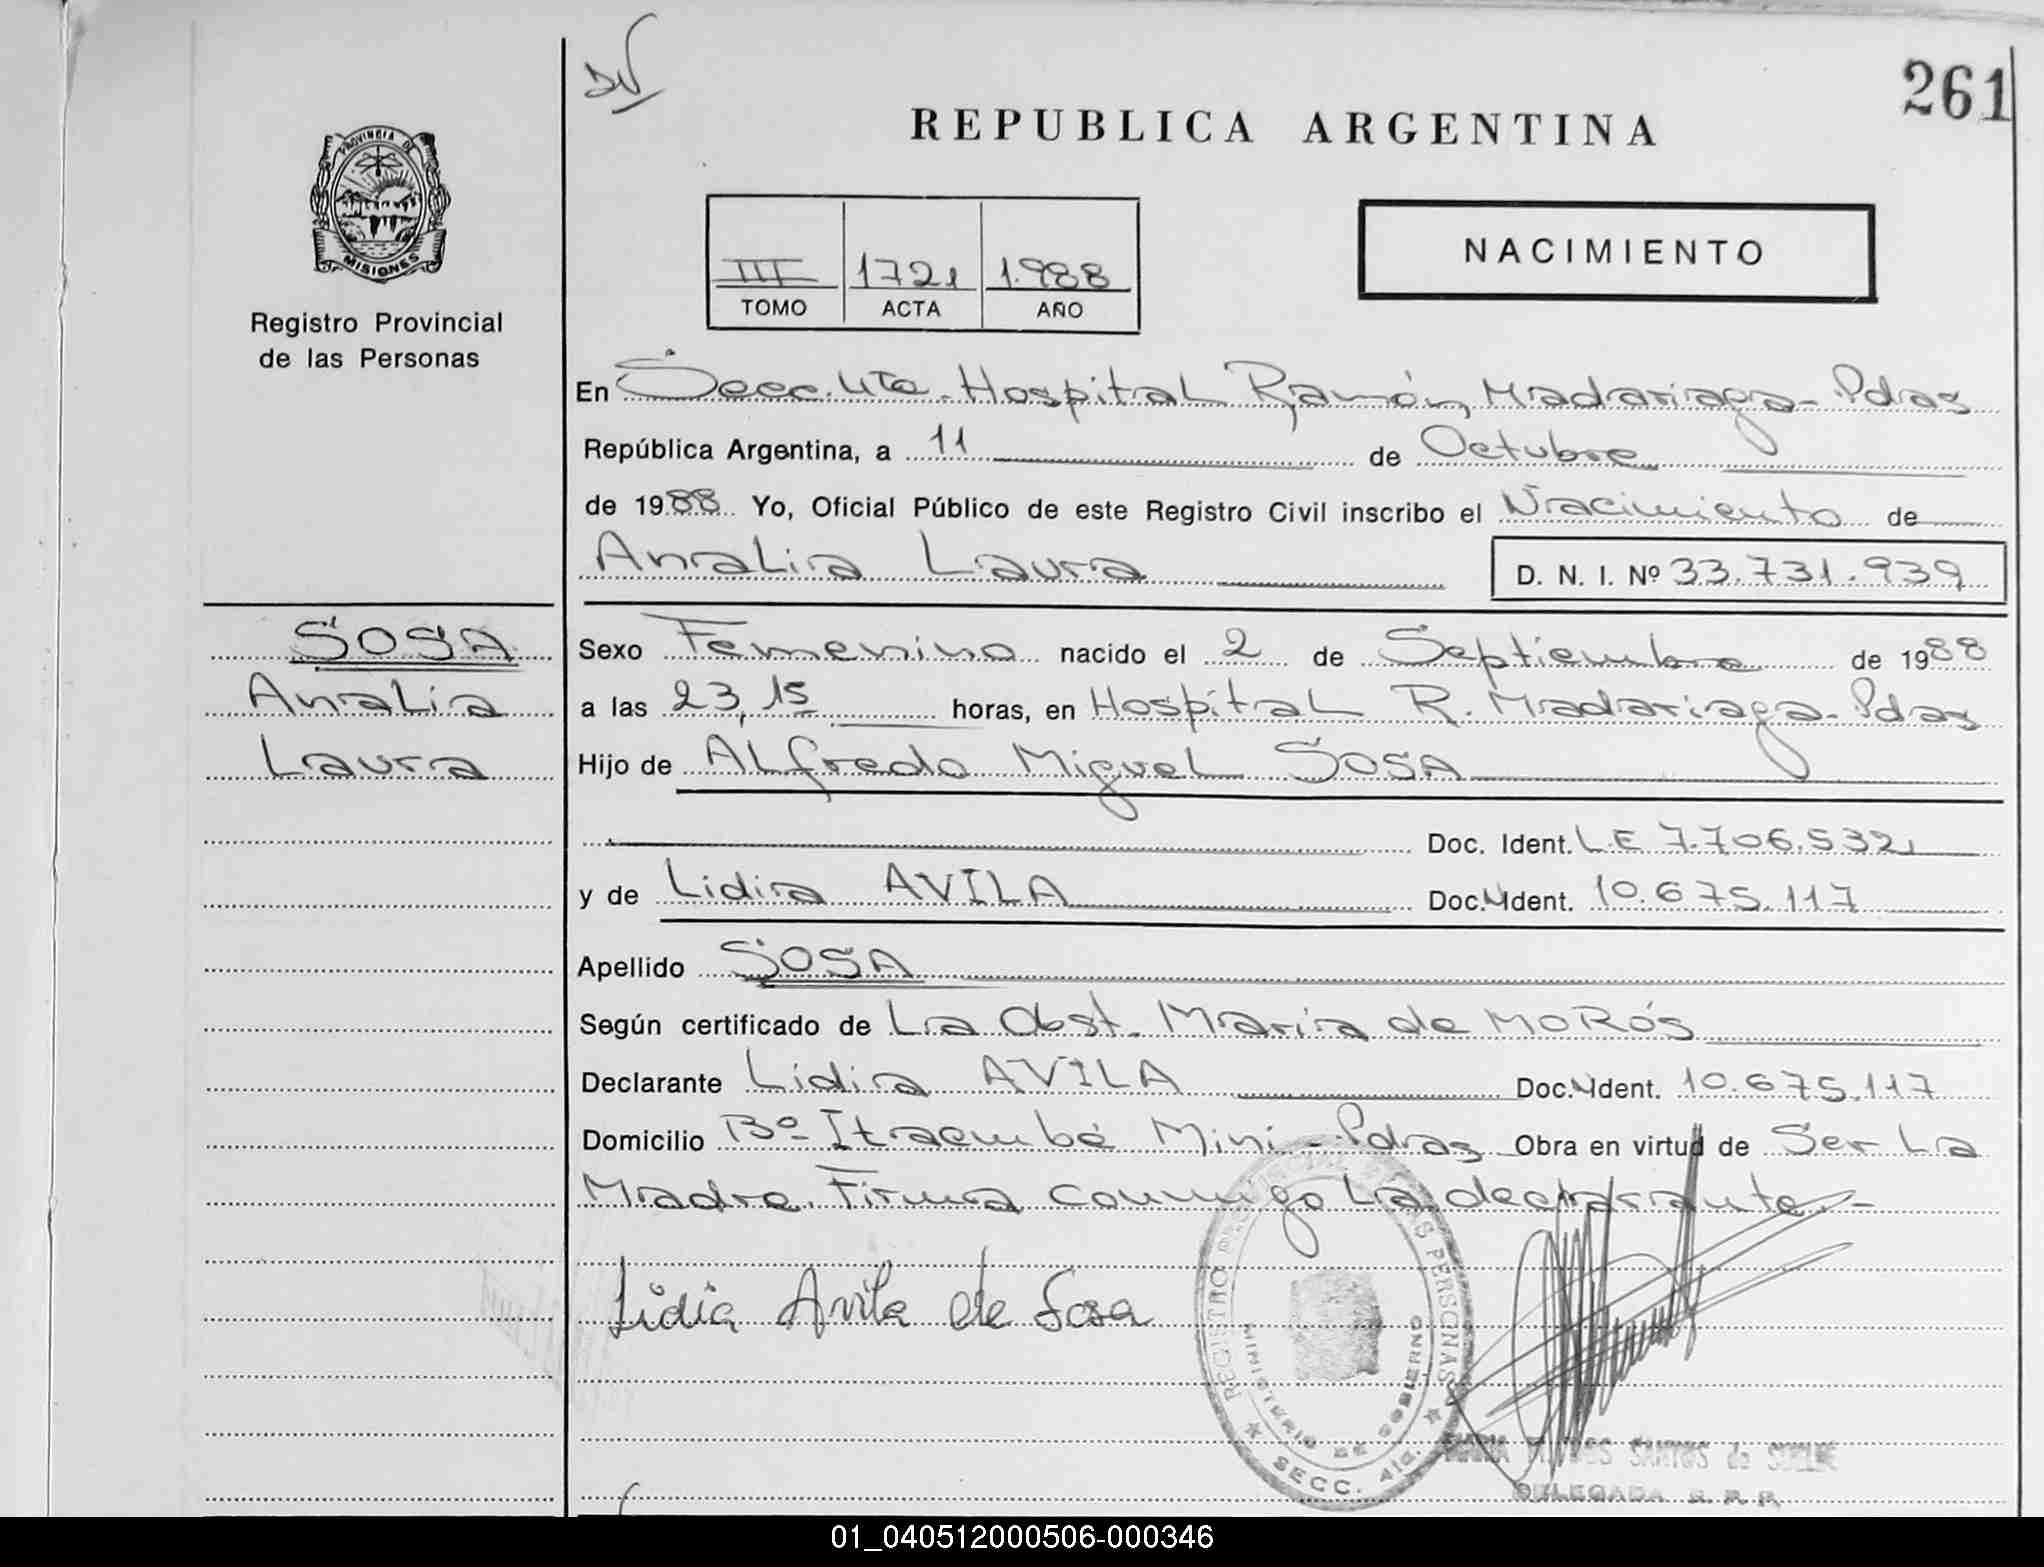 DV
261
REPUBLICA ARGENTINA
PROVINCIA DE
MISIONES
Registro Provincial
de las Personas
III 1721 1.988
TOMO ACTA AÑO
NACIMIENTO
En Secc. 4ta. Hospital Ramón Madariaga - Pdas
República Argentina, a 11 de Octubre
de 1988 Yo, Oficial Público de este Registro Civil inscribo el Nacimiento de
Analia Laura D. N. I. Nº 33.731.939
SOSA
Analia
Laura
Sexo Femenino nacido el 2 de Septiembre de 1988
a las 23,15 horas, en Hospital R. Madariaga - Pdas
Hijo de ALfredo Miguel SOSA
Doc. Ident. L.E 7.706.532
y de Lidia AVILA Doc. Ident. 10.675.117
Apellido SOSA
Según certificado de La Obst. Maria de MoRós
Declarante Lidia AVILA Doc. Ident. 10.675.117
Domicilio Bº Itaembé Mini - Pdas Obra en virtud de Ser La
Madre. Firma conmigo La declarante. -
Lidia Avila de Sosa
REGISTRO PROVINCIAL DE LAS PERSONAS
MINISTERIO DE GOBIERNO
SECC. 4ta.
SANTOS de
DELEGADA R. P. P.
01_040512000506-000346